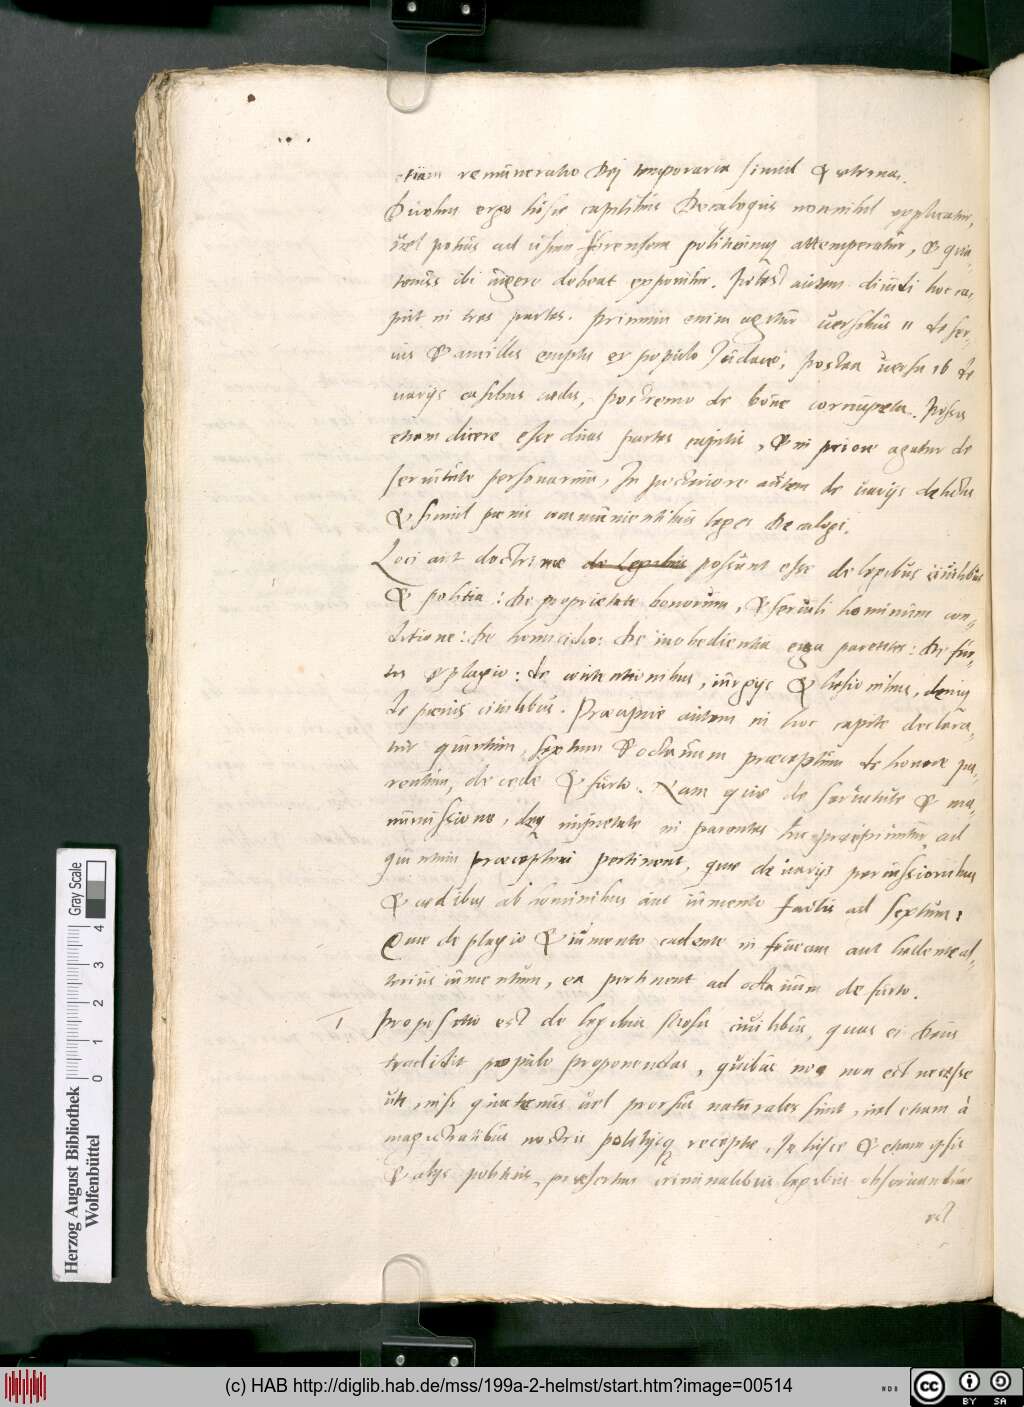 etiam remuneratio Dei temporaria simul & æterna.
Duobus ergo hisce capitibus Decalogus nonnihil explicatur,
uel potius ad usum forensem politicumq attemperatur, & qua-
tenus ibi uigere debeat exponitur. Potest autem diuidi hoc ca-
put in tres partes. Primum enim agitur uersibus 11 de ser-
uis & ancillis emptis ex populo Iudaico, Postea uersu 16 de
uarijs casibus cædis, postremo de boue cornupeta. Possis
etiam dicere esse duas partes capitis, & in priore agatur de
seruitute personarum, In posteriore autem de uarijs delictis
& simul pœnis communientibus leges Decalogi.
Loci aut doctrinæ de legibus possunt esse de legibus ciuilibus
& politia: De proprietate bonorum, & seruili hominum con-
ditione: De homicidio: De inobedientia erga parentes: De fur-
tis & plagio: de contentionibus, iurgijs & læsionibus, deniq
de pœnis ciuilibus. Præcipue autem in hoc capite declara-
tur quintum, sextum & octauum præceptum de honore pa-
rentum, de cæde & furto. Nam quæ de seruitute & ma-
numissione, deq impietate in parentes hic præcipiuntur, ad
quintum præceptum pertinent, quæ de uarijs percussionibus
& cædibus ab hominibus aut iumento factis ad sextum:
Quæ de plagio & iumento cadente in foueam aut lædente al-
terius iumentum, ea pertinent ad octauum de furto.
I Propositio est de legibus Mosis ciuilibus, quas ei Deus
tradidit populo proponendas, quibus nos non est necesse
uti, nisi quatenus uel prorsus naturales sunt, uel etiam à
magistratibus nostris politijsq receptæ, In hisce & etiam ipsis
& alijs politicis, præsertim criminalibus legibus obseruandum
est
Herzog August Bibliothek
Wolfenbüttel
Gray Scale
0 1 2 3 4
(c) HAB http://diglib.hab.de/mss/199a-2-helmst/start.htm?image=00514
WDB
cc BY SA